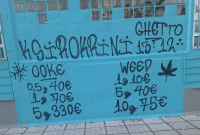 GHETTO
KSIROKRINI 13:12
COKE
0,5g 40€
1g 70€
5g 330€
WEED
1g 10€
5g 40€
10g 75€